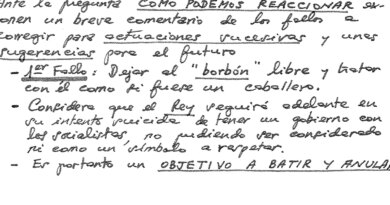 Ante la pregunta COMO PODEMOS REACCIONAR se
ponen un breve comentario de los fallos a
corregir para actuaciones sucesivas y unas
sugerencias para el futuro
- 1er Fallo: Dejar al "borbón" libre y tratar
con él como si fuese un caballero.
- Considera que el Rey seguirá adelante en
su intento suicida de tener un gobierno con
los socialistas, no pudiendo ser considerado
ni como un símbolo a respetar.
- Es portanto un OBJETIVO A BATIR Y ANULAR